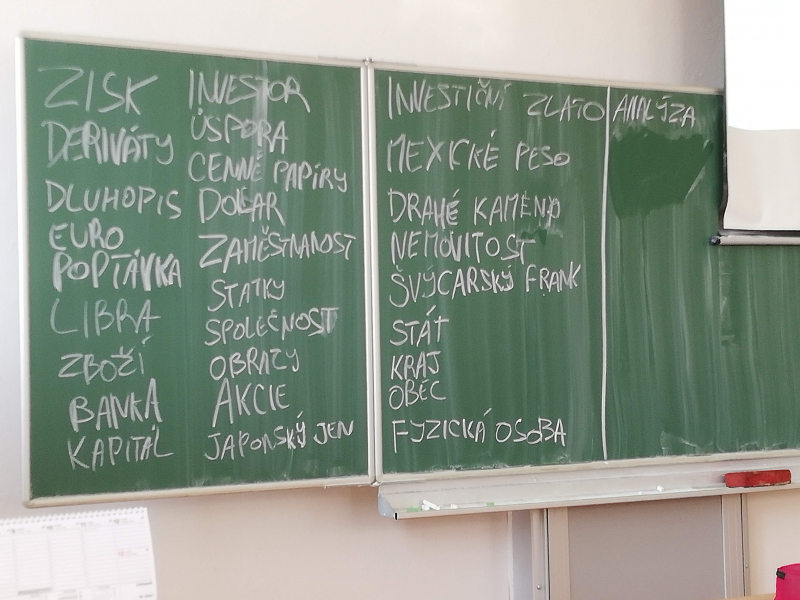 ZISK
DERIVÁTY
DLUHOPIS
EURO
POPTÁVKA
LIBRA
ZBOŽÍ
BANKA
KAPITÁL
INVESTOR
ÚSPORA
CENNÉ PAPÍRY
DOLAR
ZAMĚSTNANOST
STATKY
SPOLEČNOST
OBRAZY
AKCIE
JAPONSKÝ JEN
INVESTIČNÍ ZLATO
MEXICKÉ PESO
DRAHÉ KAMENY
NEMOVITOST
ŠVÝCARSKÝ FRANK
STÁT
KRAJ
OBEC
FYZICKÁ OSOBA
ANALÝZA